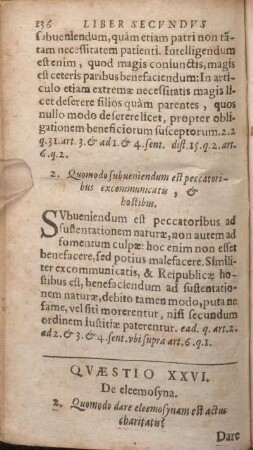 136 LIBER SECVNDVS
subueniendum, quàm etiam patri non tã-
tam necessitatem patienti. Intelligendum
est enim, quod magis coniunctis, magis
est ceteris paribus benefaciendum: In arti-
culo etiam extremæ necessitatis magis li-
cet deserere filios quàm parentes, quos
nullo modo deserere licet, propter obli-
gationem beneficiorum susceptorum. 2.2
q.31. art. 3. & ad 1. & 4. sent. dist. 15. q. 2. art.
6. q. 2.
2. Quomodo subueniendum est peccatori-
bus excommunicatis, &
hostibus.
SVbueniendum est peccatoribus ad
sustentationem naturæ, non autem ad
fomentum culpæ: hoc enim non esset
benefacere, sed potius malefacere. Simili-
ter excommunicatis, & Reipublicæ ho-
stibus est, benefaciendum ad sustentatio-
nem naturæ, debito tamen modo, puta ne
fame, vel siti morerentur, nisi secundum
ordinem Iustitiæ paterentur. ead. q. art. 2.
ad 2. & 3. & 4. sent. vbi supra art. 6. q. 1.
QVÆSTIO XXVI.
De eleemosyna.
2. Quomodo dare eleemosynam est actus
charitatis?
Dare